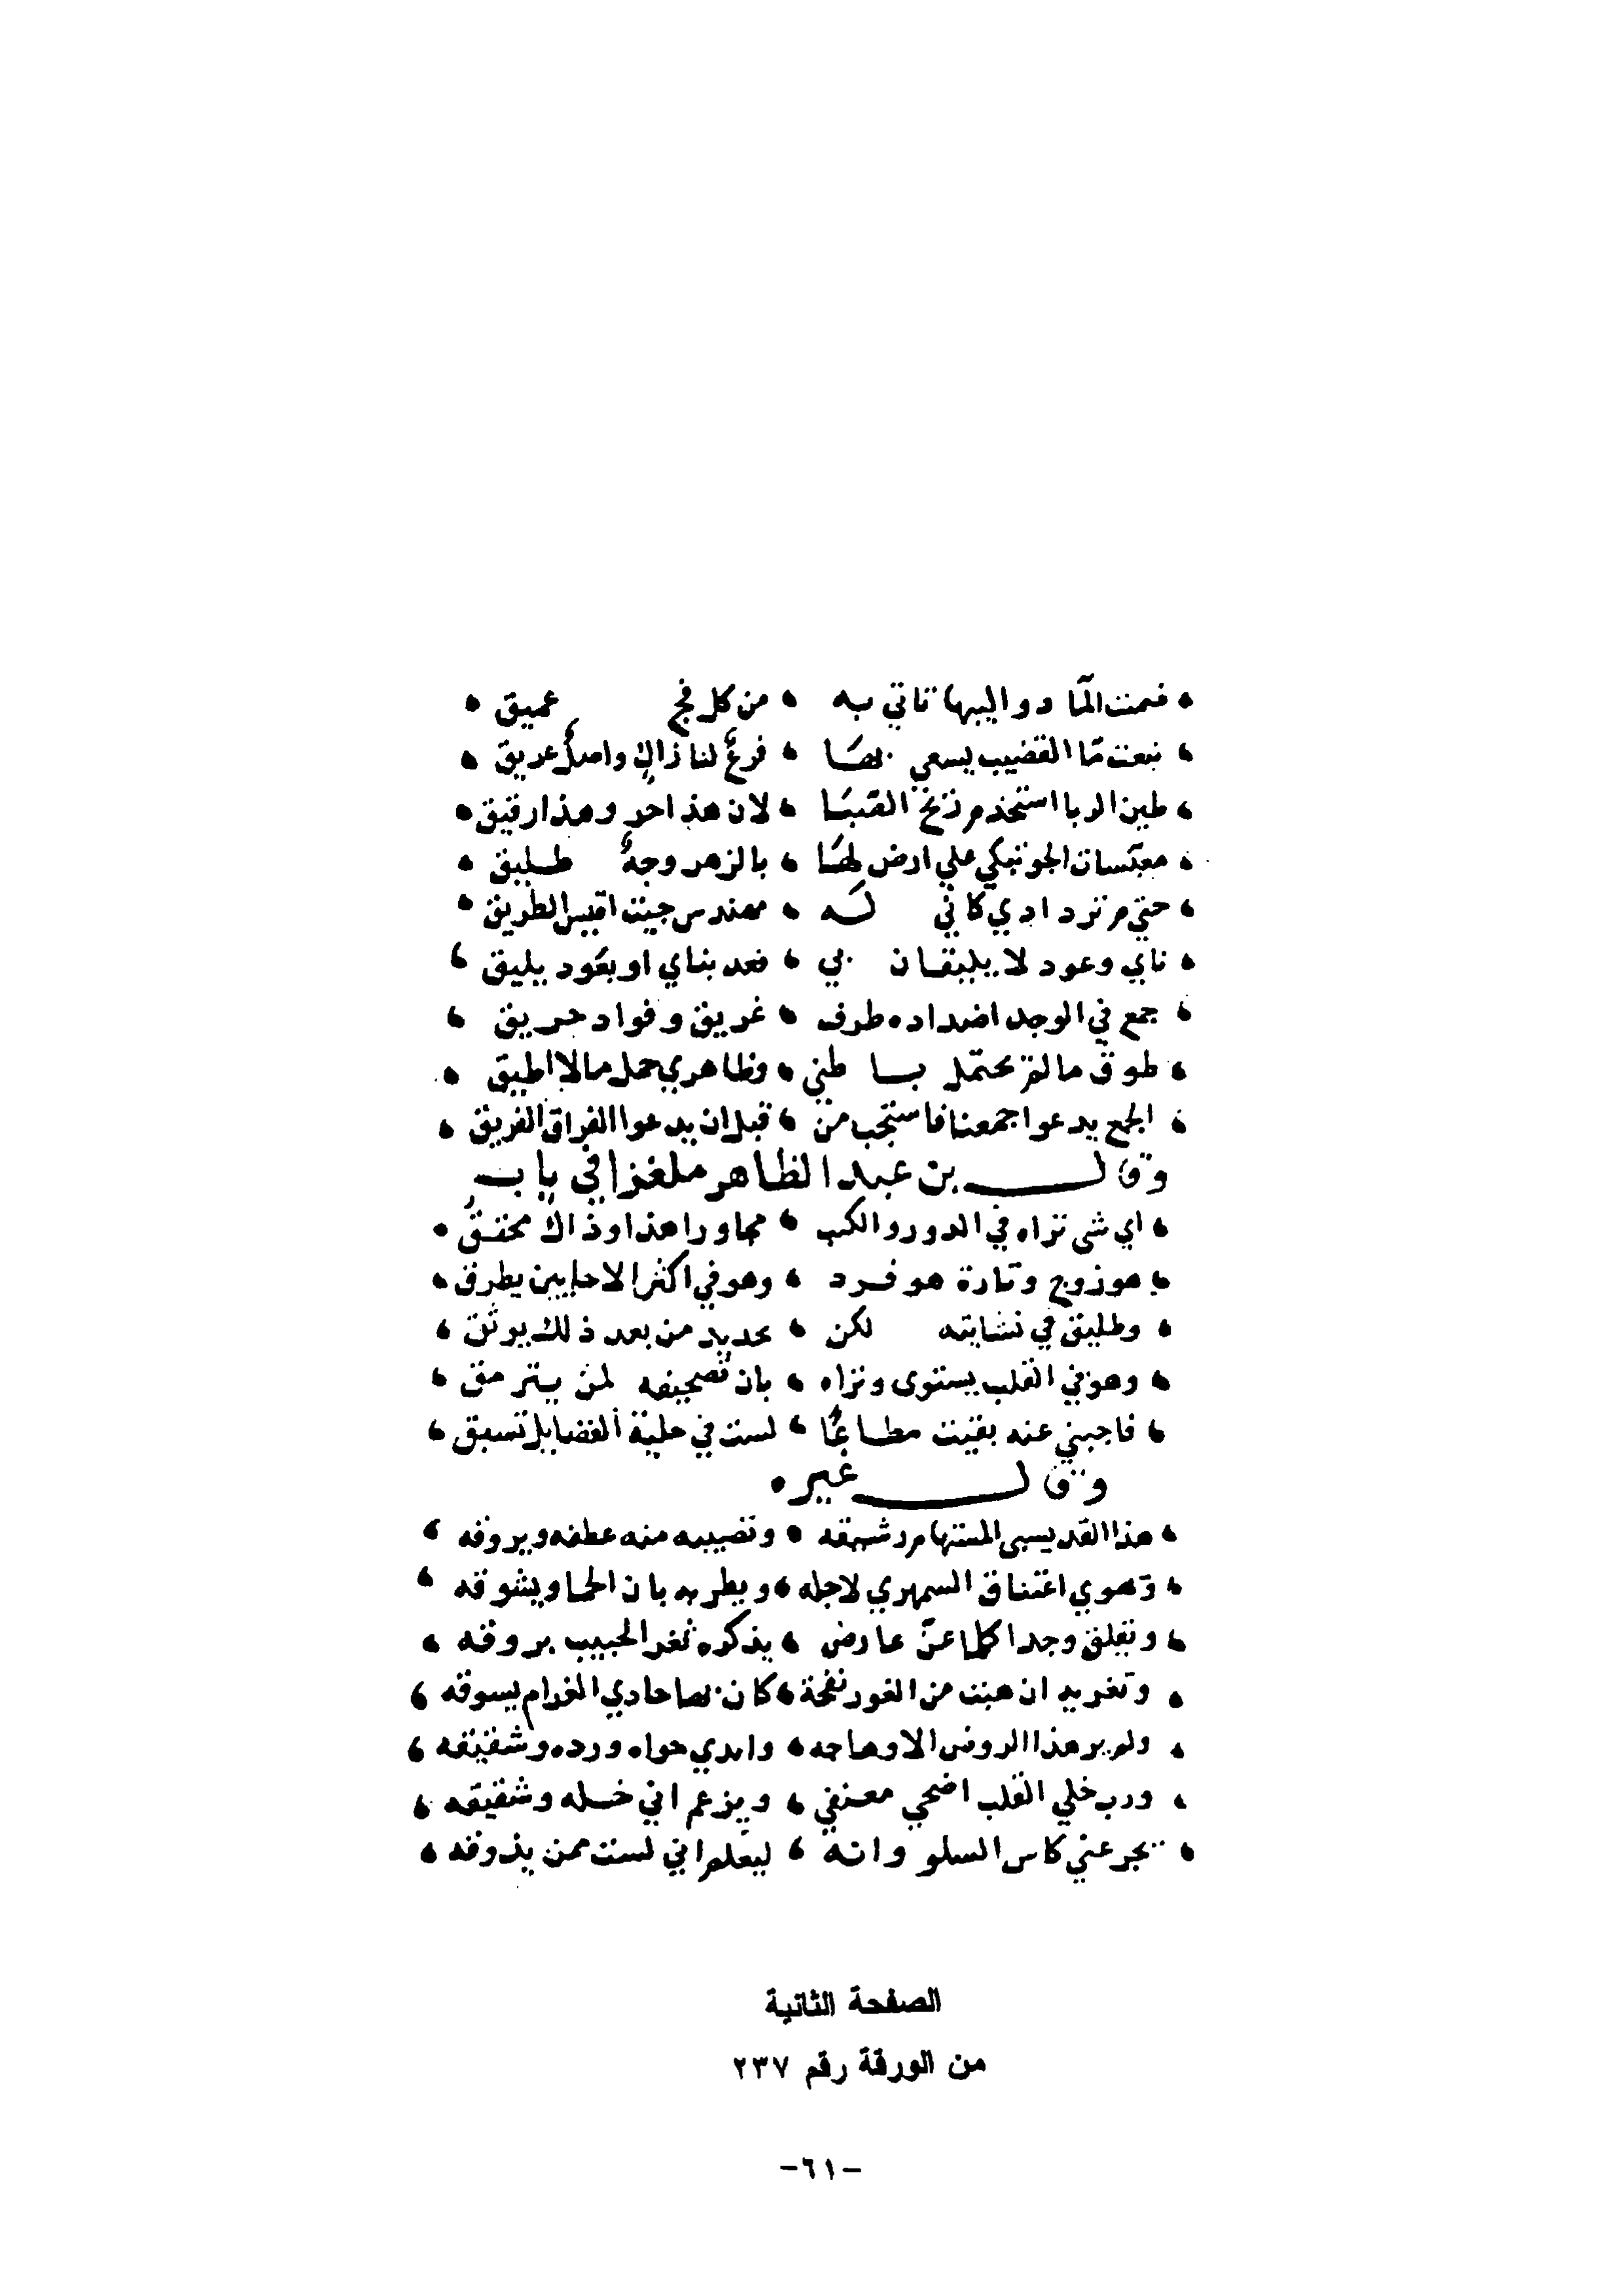 فمنت الما دواليبها تاتي به من كل فج عميق
نبعت ما القضيب يسعي بها فرعٌ لنا زاكٍ واصلٌ عريق
طين الربا استخدم زنج القبا لان هذا حر وهذا رقيق
معبسات الجو تبكي علي ارض لها بالزهر وجهٌ طليق
حتي م تردادي كاني له مهندس جيت اقيس الطريق
ناي وعود لا يليقان بي فعد بناي او بعود يليق
جمع في الوجد اضداده طرف غريق وفواد حريق
طوق ما لم يحتمل باطني وظاهري حمل مالا اطيق
الجمع يدعوا جمعنا فاستجب من قبل ان يدعوا الفراق الفريق
وقال بن عبد الظاهر ملغزا في باب
اي شي تراه في الدور والكتب مجاورا هذا وذاك محقق
هو زوج وتارة هو فرد وهو في اكثر الاحايين يطرق
وطليق في نشاته لكن بحديد من بعد ذلك يوثق
وهو في القلب يستوى وتراه بان تصحيفه لمن يترمق
فاجبني عنه بقيت مطاعًا لست في حلبة الفضايل تسبق
وقال غيره
هذا القد يسبي المستهام رشيقه وقضيبه منه عطفه ويروقه
وهوي اعتناق السمهري لاجله ويطربه بان الحما ويشوقه
ونقلق وجدا كلما عنّ عارض يذكره ثغر الحبيب بروقه
وتغريد ان هبت من الغور نفحة كان بها حادي الغرام يسوقه
ولم ير هذا الروض الا وهاجه وابدي هواه ورده وشقيقه
ورب خلي القلب اضحي معنفي ويزعم اني خله وشقيقه
يجرعني كاس السلو وانه ليعلم اني لست ممن يذوقه
الصفحة الثانية
من الورقة رقم ٢٣٧
-٦١-